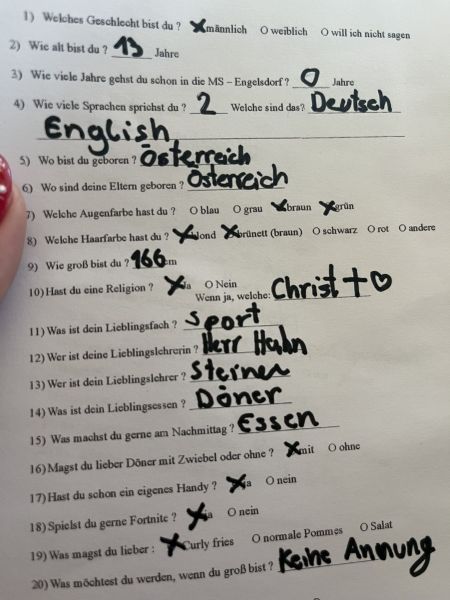 1) Welches Geschlecht bist du ? X männlich O weiblich O will ich nicht sagen
2) Wie alt bist du ? 13 Jahre
3) Wie viele Jahre gehst du schon in die MS – Engelsdorf ? 0 Jahre
4) Wie viele Sprachen sprichst du ? 2 Welche sind das? Deutsch
English
5) Wo bist du geboren ? Österreich
6) Wo sind deine Eltern geboren ? Österreich
7) Welche Augenfarbe hast du ? O blau O grau X braun X grün
8) Welche Haarfarbe hast du ? X blond X brünett (braun) O schwarz O rot O andere
9) Wie groß bist du ? 166 cm
10) Hast du eine Religion ? X Ja O Nein
Wenn ja, welche: Christ
11) Was ist dein Lieblingsfach ? Sport
12) Wer ist deine Lieblingslehrerin ? Herr Hahn
13) Wer ist dein Lieblingslehrer ? Steiner
14) Was ist dein Lieblingsessen ? Döner
15) Was machst du gerne am Nachmittag ? Essen
16) Magst du lieber Döner mit Zwiebel oder ohne ? X mit O ohne
17) Hast du schon ein eigenes Handy ? X ja O nein
18) Spielst du gerne Fortnite ? X ja O nein
19) Was magst du lieber : X Curly fries O normale Pommes O Salat
20) Was möchtest du werden, wenn du groß bist ? Keine Annung